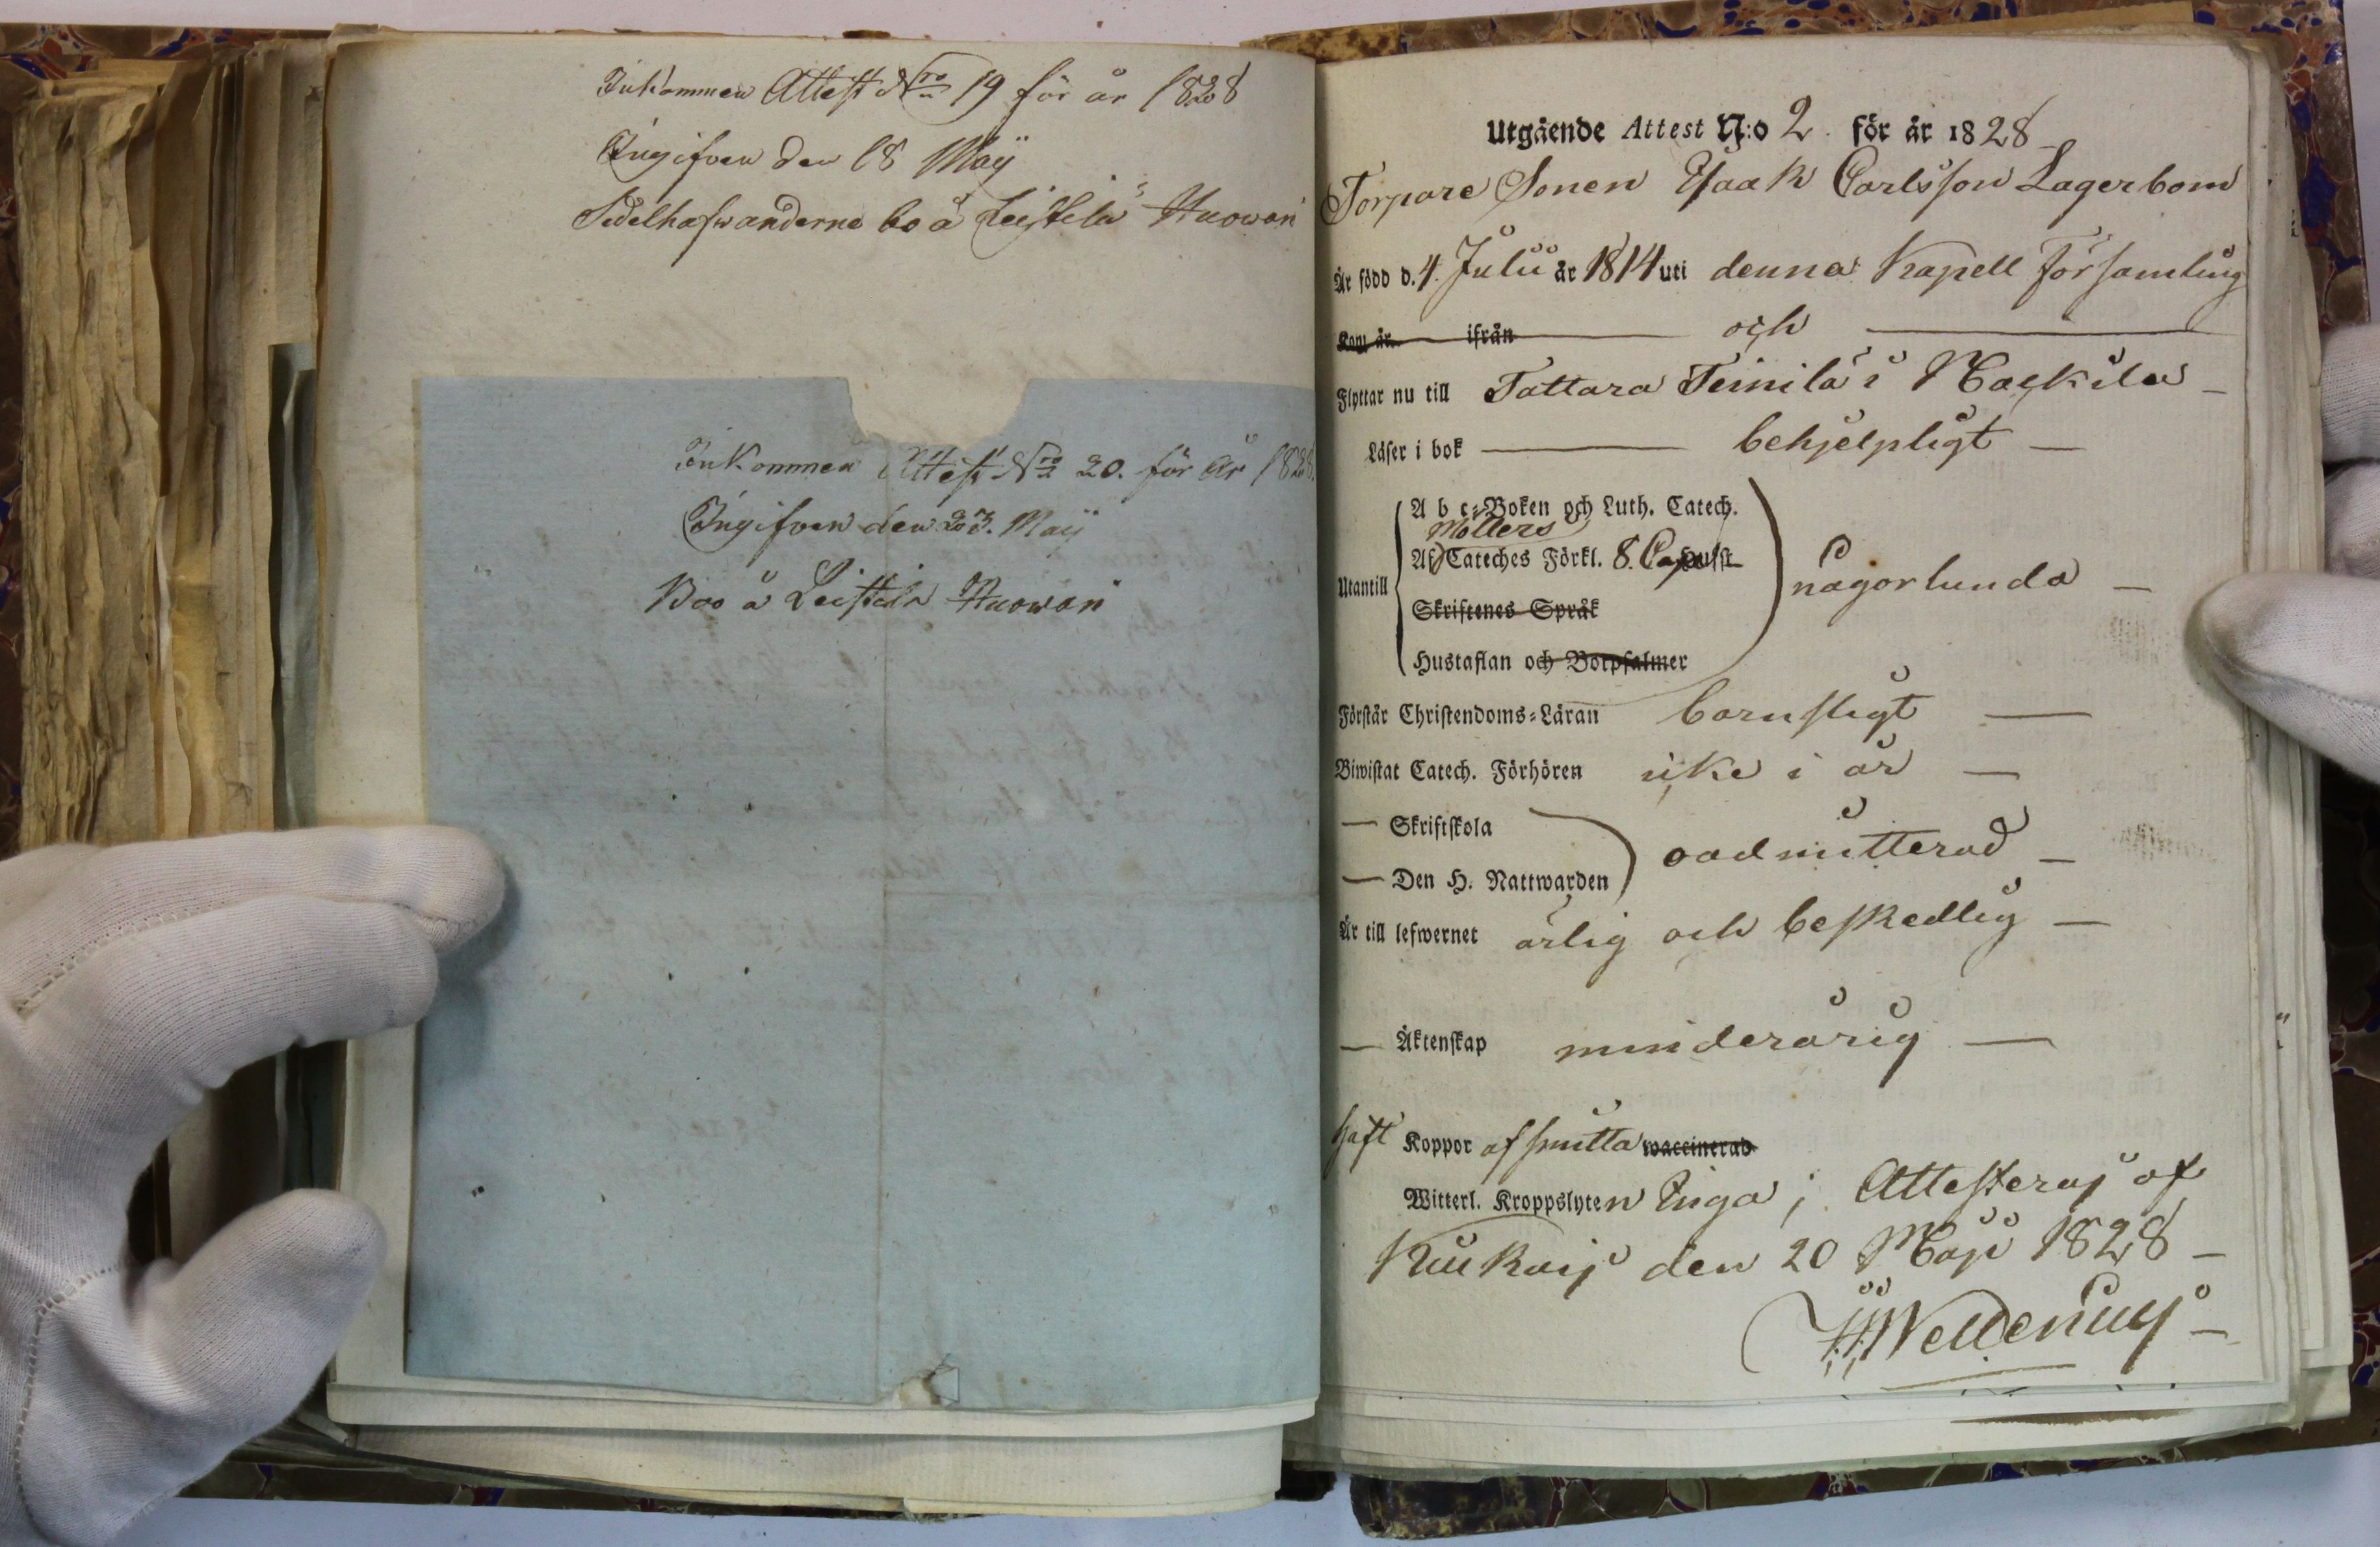 Inkommen Attest Nro 19 för år 1828
Ingifven den 18 Maÿ
Sedelhafwanderne bo å Leistilä Huowari
Inkommen Attest Nro 20. för år 1828.
Ingifven den 23. Maji
Boo å Leistilä Huowari
Utgående Attest N:o 2 för år 1828
Torpare Sonen Isaak Carlsson Lagerbom
Är född d. 4. Julii år 1814 uti denna Kapell Församling
Kom år ifrån och
Flyttar nu till Tattara Teinilä i Nackila
Läser i bok behjelpligt
A b c-Boken och Luth. Catech.
Möllers
Af Cateches Förkl. 8. Cap
Utantill någorlunda
Skriftenes Språk
Hustaflan och Botpsalmer
Förstår Christendoms-Läran barnsligt
Biwistat Catech. Förhören icke i år
Skriftskola
oadmitterad
Den H. Nattwarden
Är till lefwernet ärlig och beskedlig
Äktenskap minderårig
haft Koppor af smitta waccinerad
Witterl. Kroppslyten Inga; Attesteras af
Kiukais den 20 Maji 1828